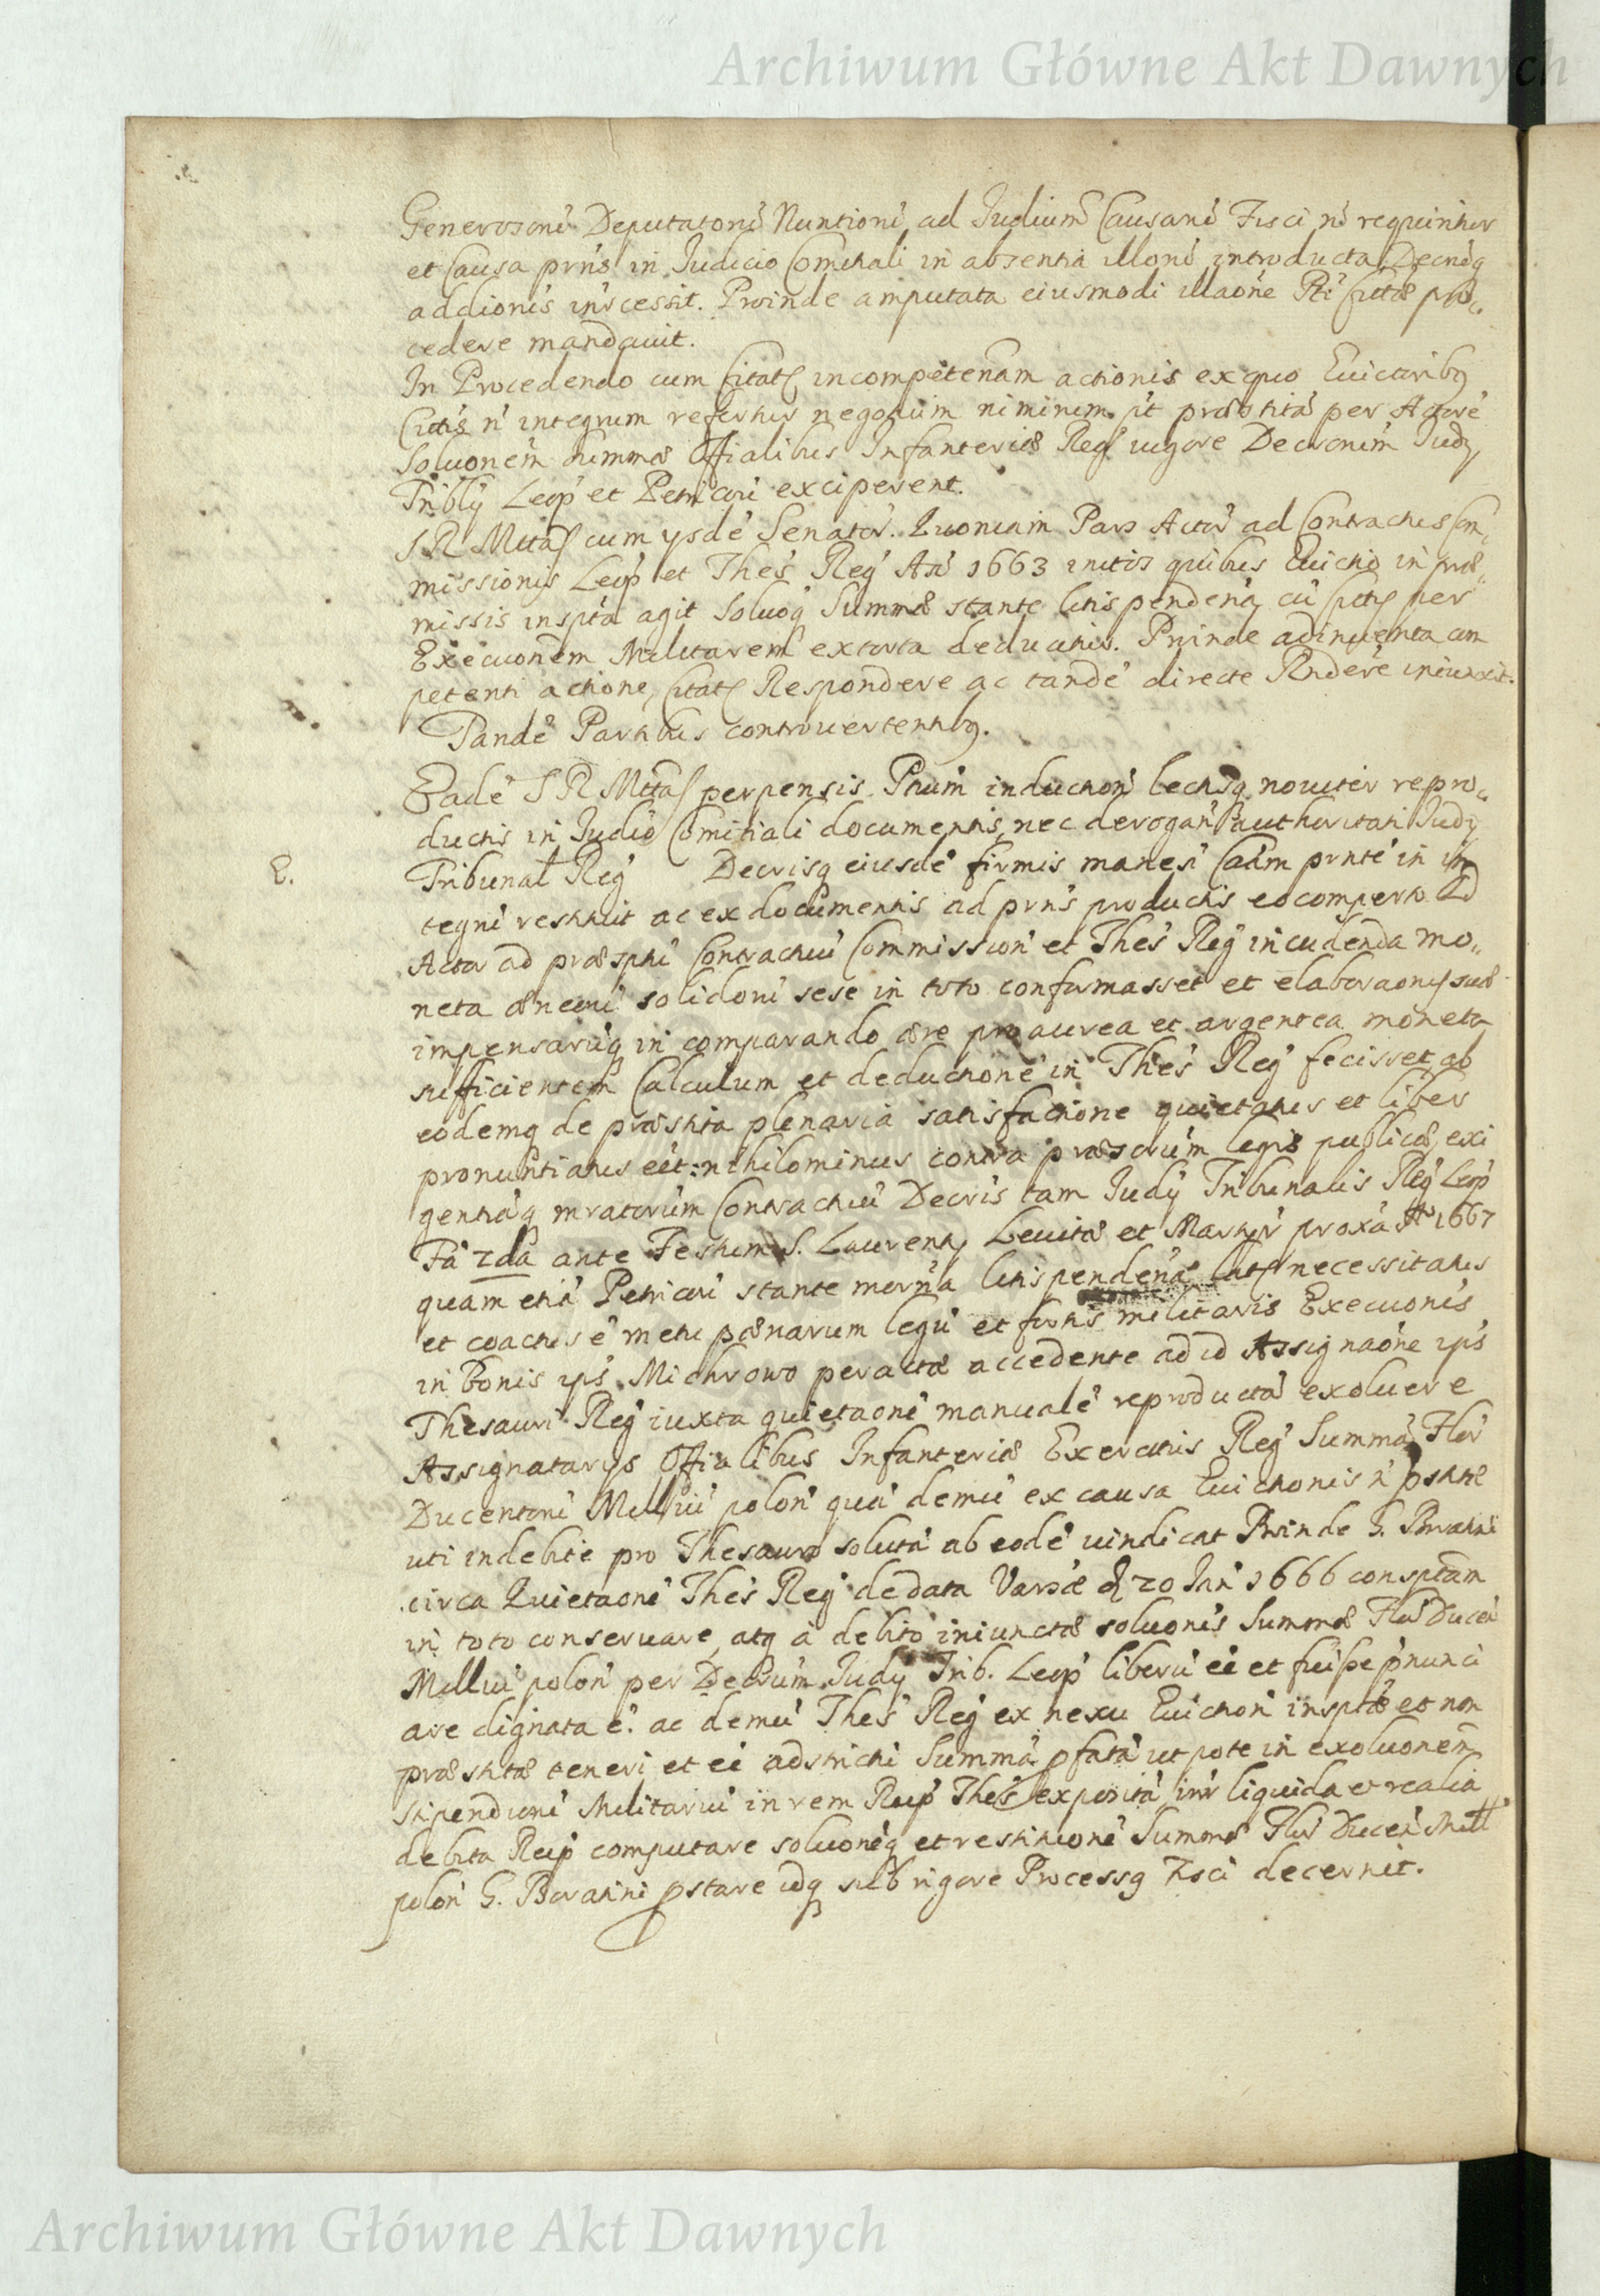 Archiwum Główne Akt Dawnych
Generosoru Deputatoru Nuntioru ad Judium Causaru Fisci n requiritur
et Causa prns in Judicio Comitiali in absentia illoru introducta
addionis Proinde amputata eiusmodi illaone Pti pro¬
cedere mandauit.
In Procedendo cum Citatq incompetenam actionis ex quo Euictoribq
n integrum refertur negotium niminem ut præstita per Actore
Soluonem summæ Offialibus Infanteriæ Reg uigore Decretorum Judy
Triblij Leop et Petricoui exciperent.
S R Mttas cum ysde Senator. Quoniam Pars Actor ad Contractus Com¬
missionis Leop et Thes Reg Ao 1663 initos quibus Euictio in præ¬
missis inspta agit Soluoq Summæ stante litispendena cu per
Execuonem Militarem extorta deducitur. Proinde adinuenta com
petenti actione, Citatq Respondere ac tande directe Rndere iniunxit.
Tande Partibus controuertentibq.
Eade S R Mttas perpensis Ptium inductioni lectisq nouiter repro¬
ductis in Judio Comitiali documentis, nec derogan authoritati Judy
E. Tribunal Reg Decrisq eiusde firmis manesi Caam prnte in in
tegru restituit ac ex documentis ad prns productis eo comperto Qd
Actor ad præsptu Contractuu Commission et Thes Reg in cudenda mo¬
neta æneoru solidoru sese in toto conformasset et elaboraonis suæ
impensaruq in comparando ære pro aurea et argentea moneta
sufficientem Calculum et deductione in Thes Reg fecisset, ab
eodemq de præstita plenaria satisfactione quietatus et liber
pronuntiatus eet: nihilominus contra præscrium legis publicæ, exi
gentiaq mratorum Contractuu Decris tam Judy Tribunalis Reg Leop
Fa 2da ante Festum S. Laurenty Leuitæ et Martyr proxa Ao 1667
quam etia Petricoui stante morna litispendena necessitatus
et coactus e metu pænarum legu et fortis militaris Execuonis
in Bonis ips Michrowo peractæ accedente ad id Assignaone ips
Thesauri Reg iuxta quietaone manuale reproducta exoluere
Assignatarys Offialibus Infanteriæ Exercitus Reg Summa Flor
Ducentoru Milliu polon qua demu ex causa Euictionis n pstitæ
uti indebite pro Thesauro soluta ab eode uindicat Proinde G. Boratini
circa Quietaone Thes Reg de data Varsæ d 20 Jan 1666 consptam
in toto conseruare, atq a debito iniunctæ soluonis Summæ Flor Ducen
Milliu polon per Decrum Judy Trib. Leop liberu ee et fuisse pnunci
are dignata e. ac demu Thes Reg ex nexu Euiction insptæ et non
præstitæ teneri et ee adstricti Summa pfata ut pote in exoluonem
stipendioru Militariu in rem Reip Thes exposita intr liquida et realia
debita Reip computare soluoneq et restituone Summæ Flor Ducen Mill
polon G. Boratini pstare idq sub rigore Processq Fisci decernit.
Archiwum Główne Akt Dawnych